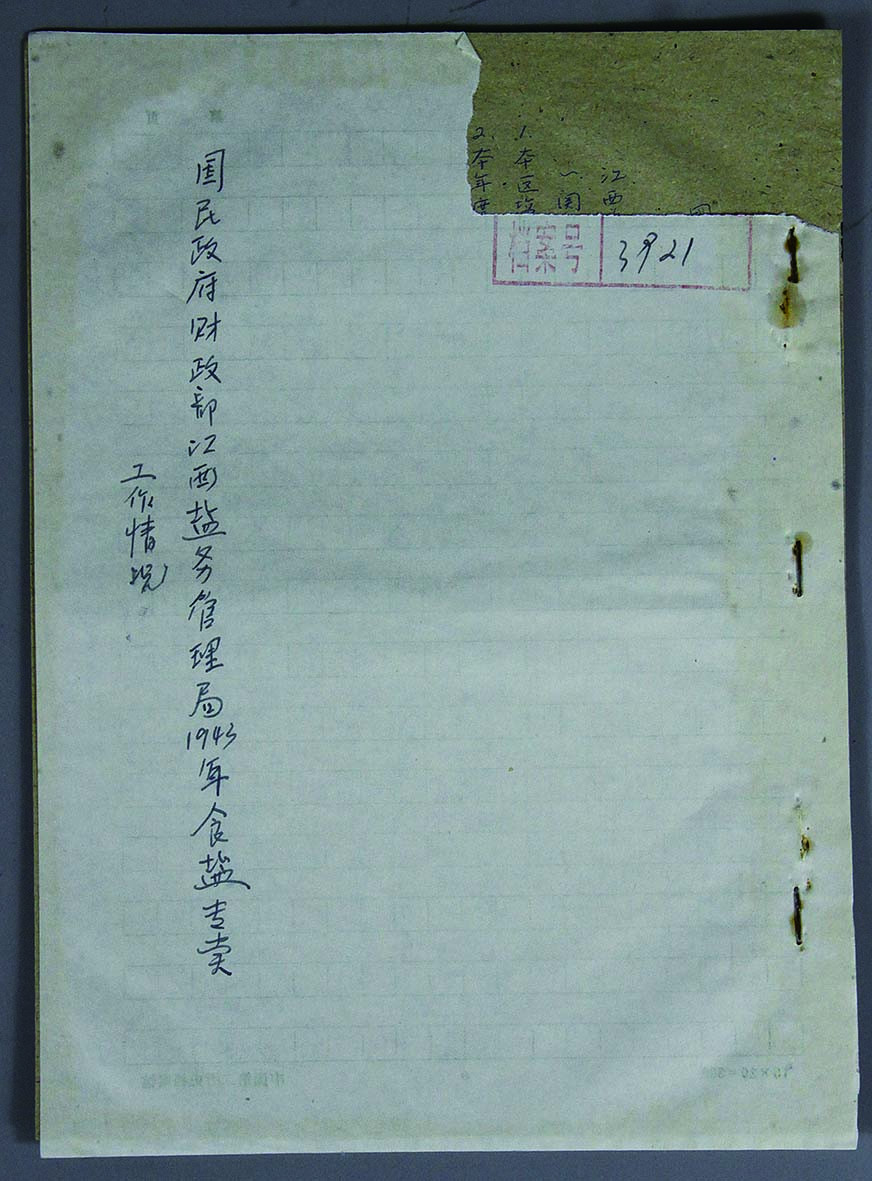 江西
1.本区
2.本年度
档案号 3921
国民政府财政部江西盐务管理局1943年食盐专卖
工作情况